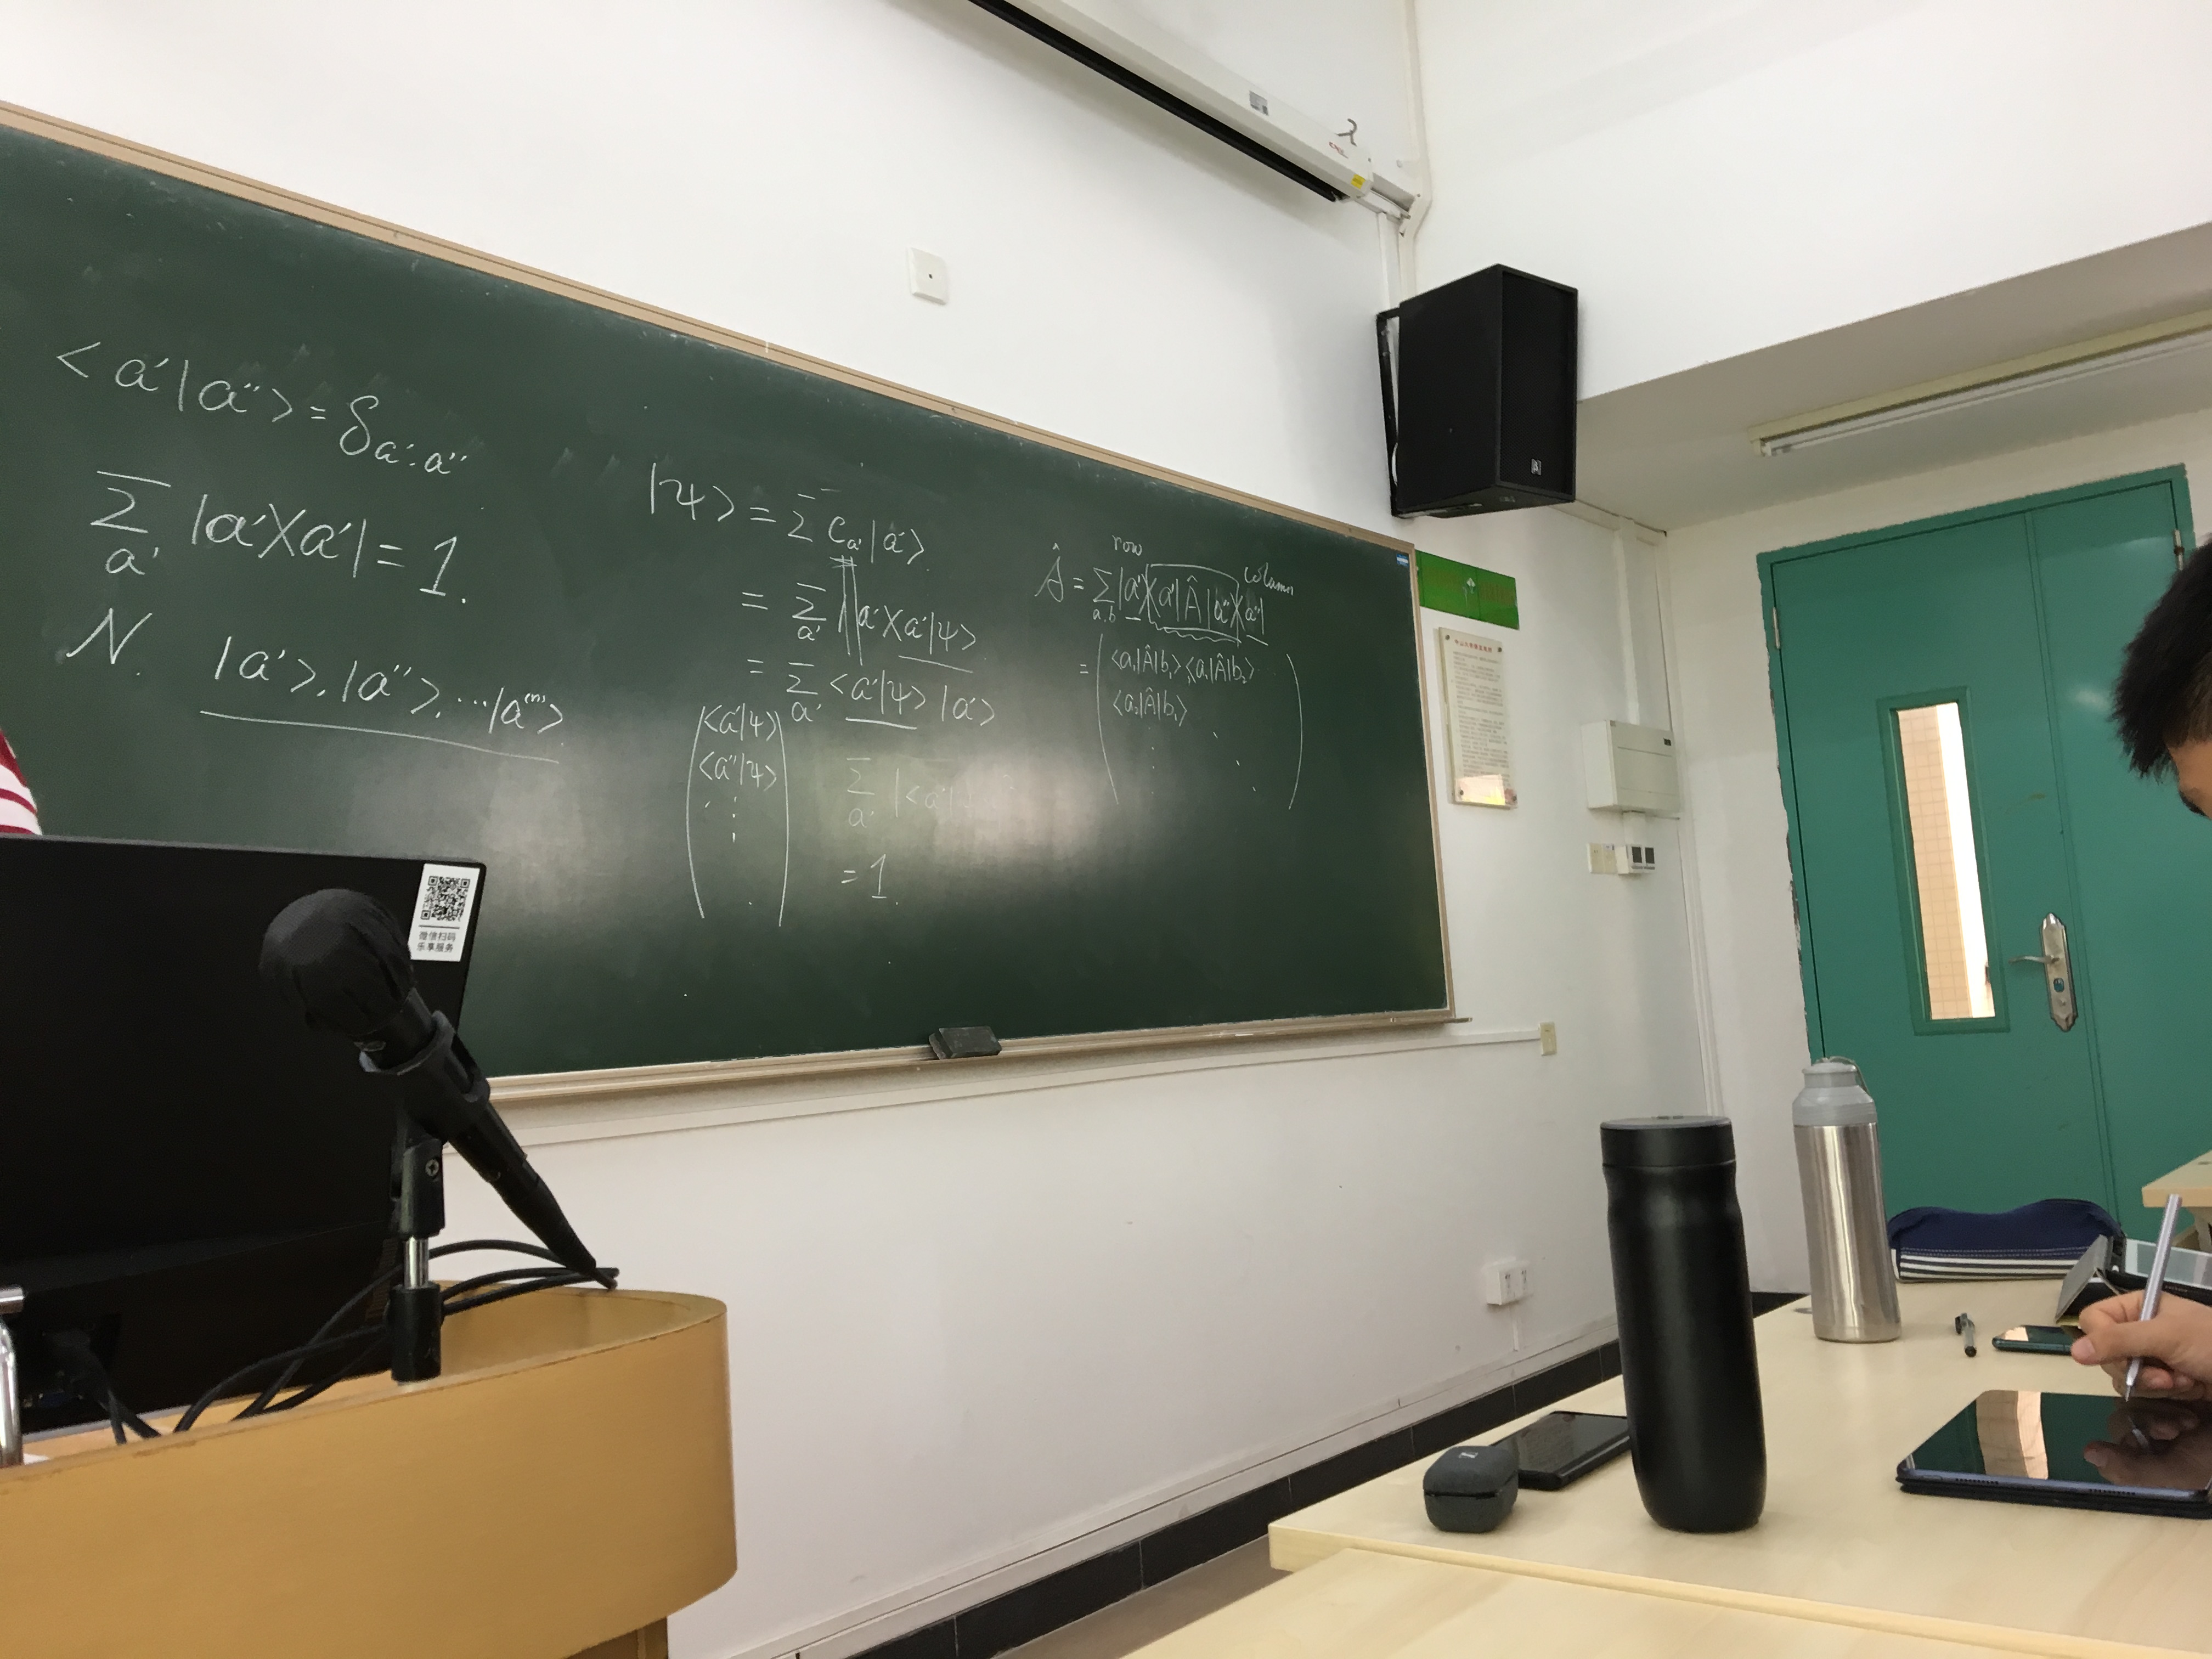 <a'|a''> = δa'.a''
Σa' |a'X a'| = 1.
N. |a'>, |a''>, ...|a⁽ⁿ⁾>.
|ψ> = Σ Ca' |a'>.
= Σa' |a'X a'|ψ>
= Σa' <a'|ψ> |a'>
<a'|ψ>
<a''|ψ>
Σa' |<a'|
= 1.
row
column
Â = Σa.b |a'X a'|Â|a''X a''|
= <a₁|Â|b₁> <a₁|Â|b₂>
<a₂|Â|b₁>
微信扫码
乐享服务